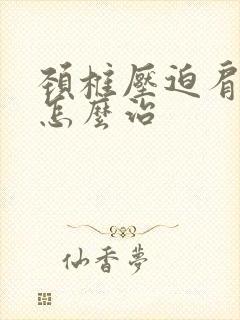 頚椎壓迫肩
怎麼治
仙香夢